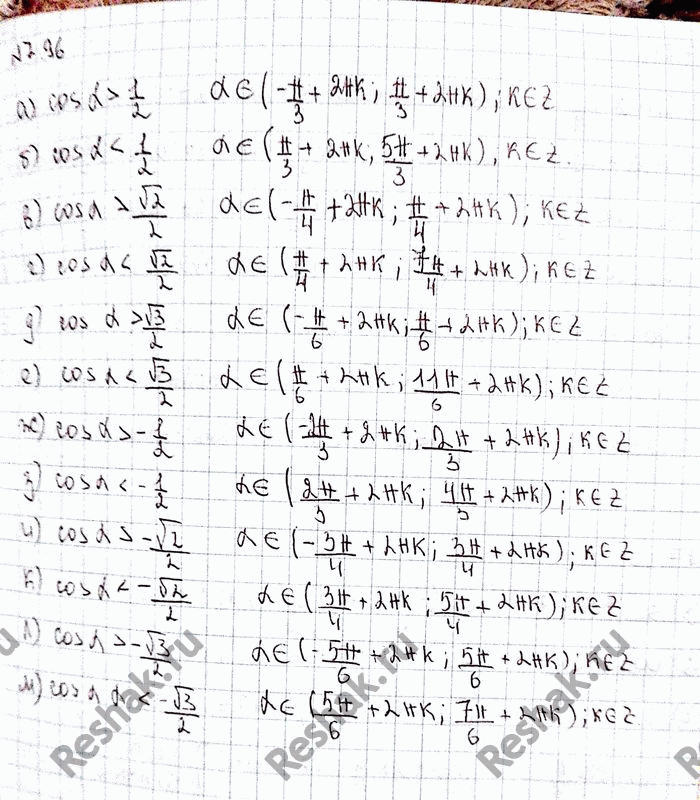 №7.96
а) cos α > 1/2   α ∈ (-π/3 + 2πk; π/3 + 2πk); k ∈ Z
б) cos α < 1/2   α ∈ (π/3 + 2πk, 5π/3 + 2πk), k ∈ Z.
в) cos α > √2/2   α ∈ (-π/4 + 2πk; π/4 + 2πk); k ∈ Z
г) cos α < √2/2   α ∈ (π/4 + 2πk; 7π/4 + 2πk); k ∈ Z
д) cos α > √3/2   α ∈ (-π/6 + 2πk; π/6 + 2πk); k ∈ Z
е) cos α < √3/2   α ∈ (π/6 + 2πk; 11π/6 + 2πk); k ∈ Z
ж) cos α > -1/2   α ∈ (-2π/3 + 2πk; 2π/3 + 2πk), k ∈ Z
з) cos α < -1/2   α ∈ (2π/3 + 2πk; 4π/3 + 2πk); k ∈ Z
и) cos α > -√2/2   α ∈ (-3π/4 + 2πk; 3π/4 + 2πk); k ∈ Z
к) cos α < -√2/2   α ∈ (3π/4 + 2πk; 5π/4 + 2πk); k ∈ Z
л) cos α > -√3/2   α ∈ (-5π/6 + 2πk; 5π/6 + 2πk); k ∈ Z
м) cos α α < -√3/2   α ∈ (5π/6 + 2πk; 7π/6 + 2πk); k ∈ Z
Reshak.ru
Reshak.ru
Reshak.ru